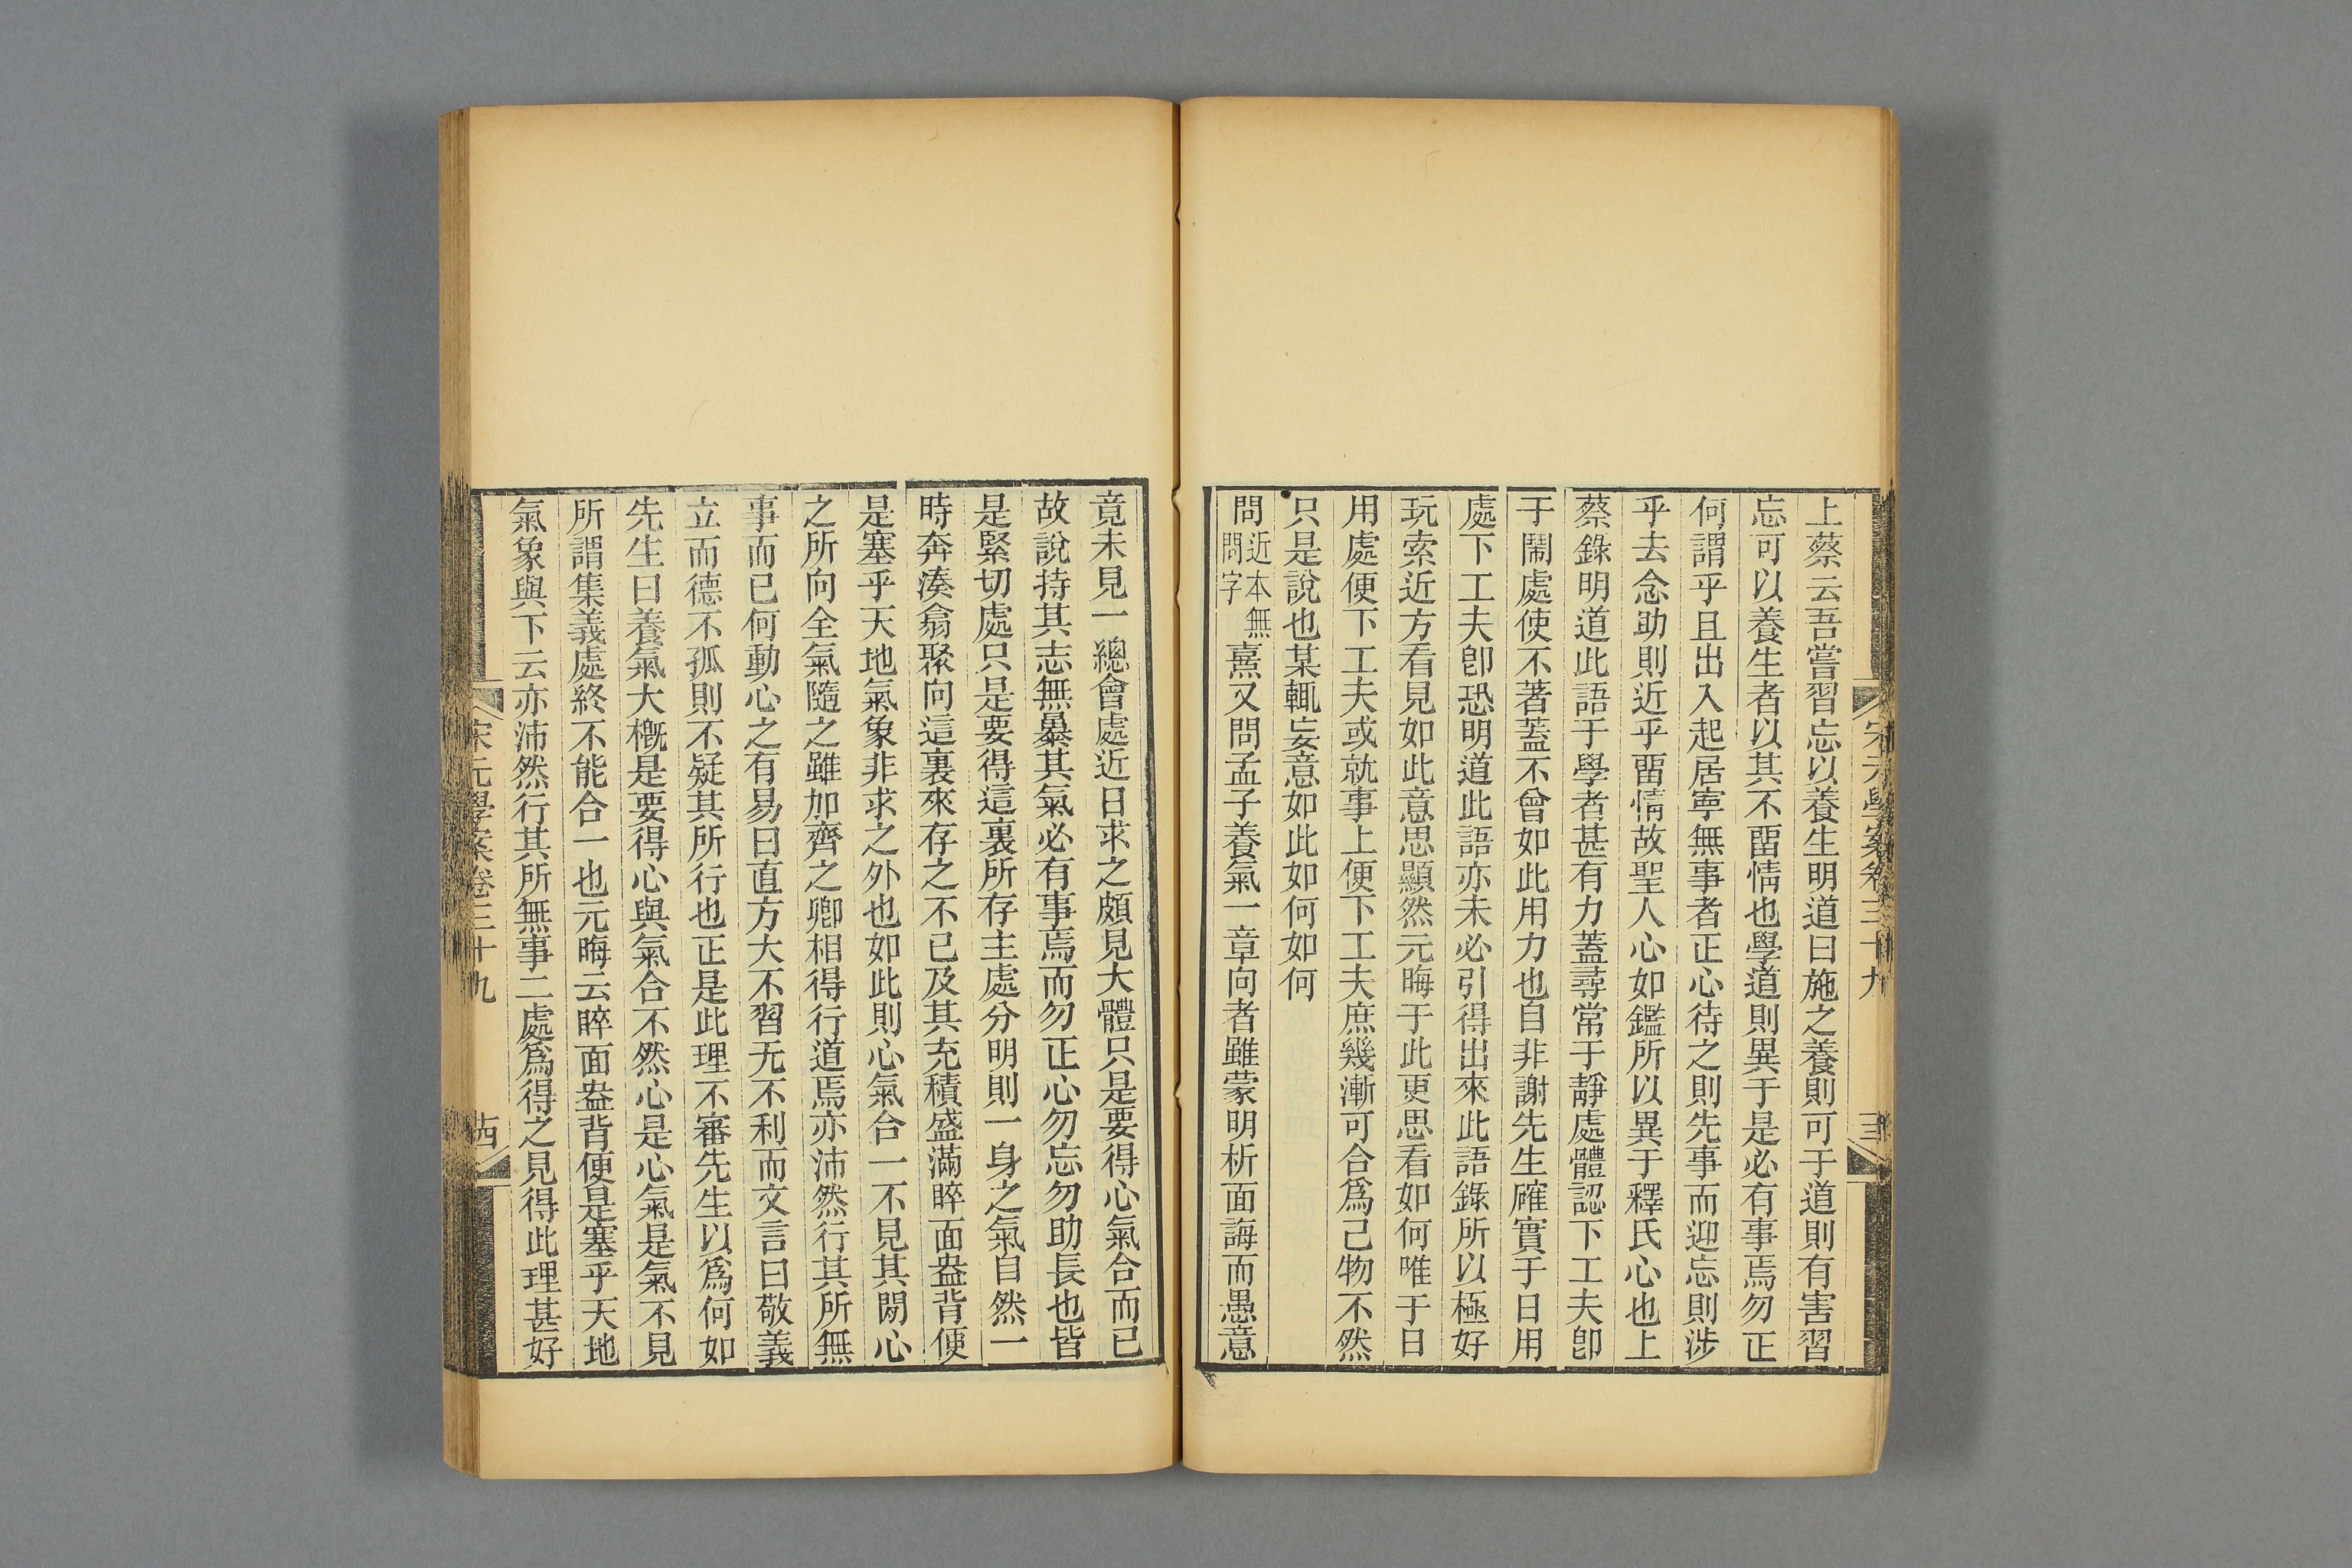 宋元學案卷三十九
上蔡云吾嘗習忘以養生明道曰施之養則可于道則有害習
忘可以養生者以其不畱情也學道則異于是必有事焉勿正
何謂乎且出入起居寧無事者正心待之則先事而迎忘則涉
乎去念助則近乎畱情故聖人心如鑑所以異于釋氏心也上
蔡錄明道此語于學者甚有力蓋尋常于靜處體認下工夫卽
于鬧處使不著蓋不曾如此用力也自非謝先生確實于日用
處下工夫卽恐明道此語亦未必引得出來此語錄所以極好
玩索近方看見如此意思顯然元晦于此更思看如何唯于日
用處便下工夫或就事上便下工夫庶幾漸可合爲己物不然
只是說也某輒妄意如此如何如何
問近本無問字熹又問孟子養氣一章向者雖蒙明析面誨而愚意
竟未見一總會處近日求之頗見大體只是要得心氣合而已
故說持其志無暴其氣必有事焉而勿正心勿忘勿助長也皆
是緊切處只是要得這裏所存主處分明則一身之氣自然一
時奔湊翕聚向這裏來存之不已及其充積盛滿睟面盎背便
是塞乎天地氣象非求之外也如此則心氣合一不見其閒心
之所向全氣隨之雖加齊之卿相得行道焉亦沛然行其所無
事而已何動心之有易曰直方大不習无不利而文言曰敬義
立而德不孤則不疑其所行也正是此理不審先生以爲何如
先生曰養氣大概是要得心與氣合不然心是心氣是氣不見
所謂集義處終不能合一也元晦云睟面盎背便是塞乎天地
氣象與下云亦沛然行其所無事二處爲得之見得此理甚好
宋元學案卷三十九